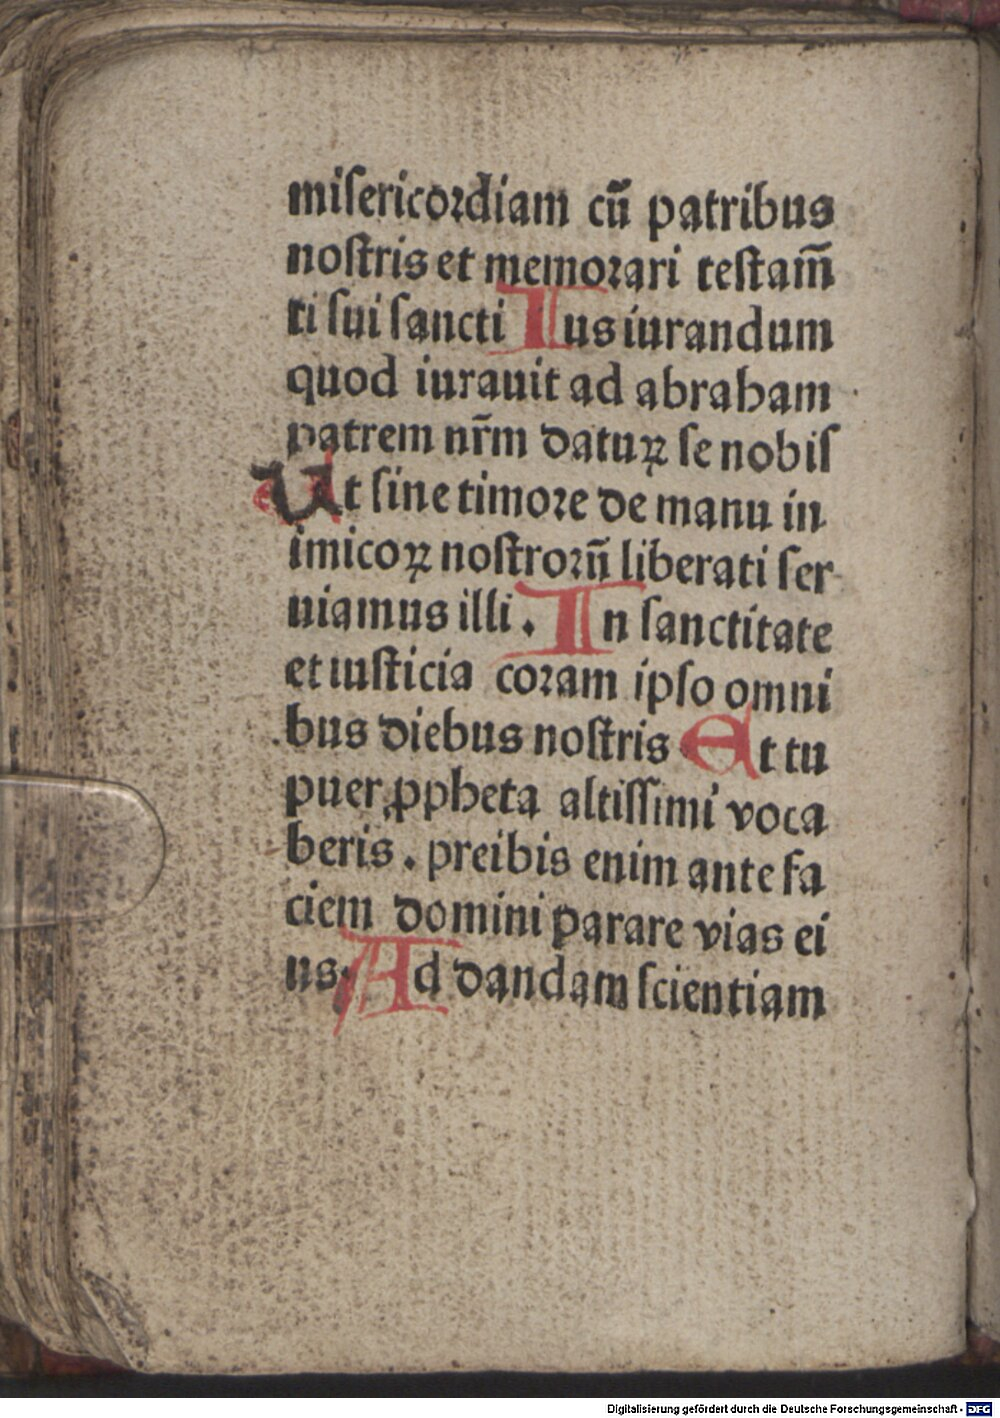 miſericoꝛdiam cū patribus
noſtris et memoꝛari teſtam̄
ti ſui ſancti Ius iurandum
quod iurauit ad abraham
patrem nr̄m datuꝝ ſe nobiſ
Ut ſine timoꝛe de manu in
imicoꝝ noſtroꝛū liberati ſer
uiamus illi. In ſanctitate
et iuſticia coꝛam ipſo omni
bus diebus noſtris Et tu
puer ꝓpheta altiſſimi voca
beris. preibis enim ante fa
ciem domini parare vias ei
us Ad dandam ſcientiam
Digitalisierung gefördert durch die Deutsche Forschungsgemeinschaft - DFG